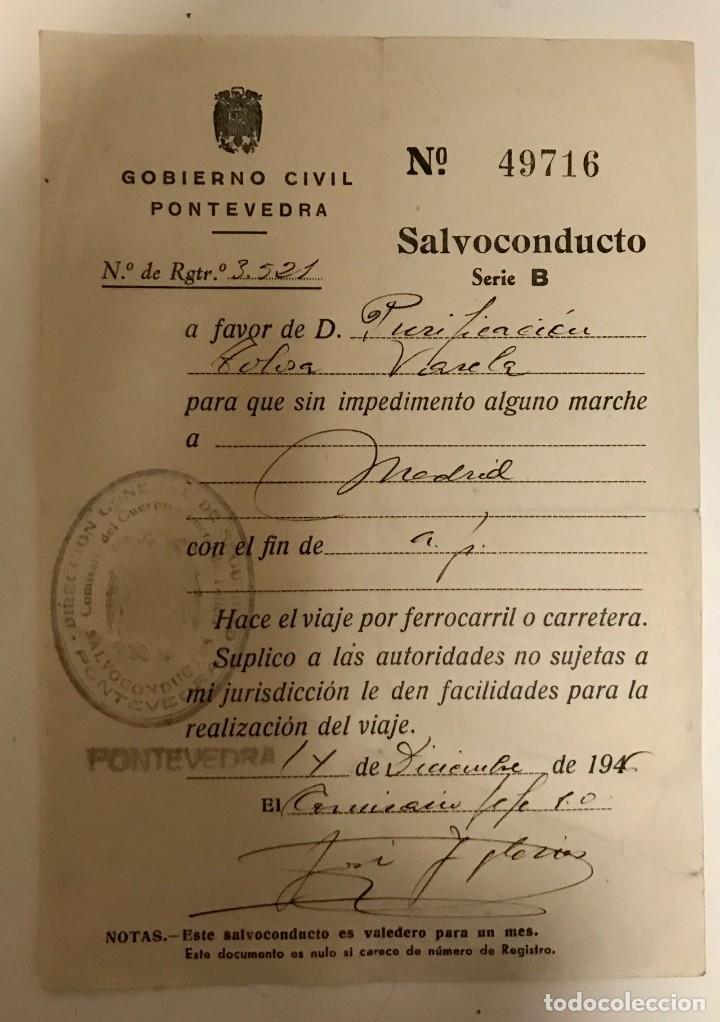 GOBIERNO CIVIL
PONTEVEDRA
Nº 49716
Salvoconducto
Serie B
N.º de Rgtr.º 3.521
a favor de D. Purificación
Tolosa Varela
para que sin impedimento alguno marche
a
Madrid
con el fin de a. p.
Hace el viaje por ferrocarril o carretera.
Suplico a las autoridades no sujetas a
mi jurisdicción le den facilidades para la
realización del viaje.
DIRECCION GENERAL DE
Comisaría del Cuerpo
SALVOCONDUCTOS
PONTEVEDRA
PONTEVEDRA
de Diciembre de 194
El Comisario Jefe
José Iglesias
NOTAS.—Este salvoconducto es valedero para un mes.
Este documento es nulo si carece de número de Registro.
todocoleccion